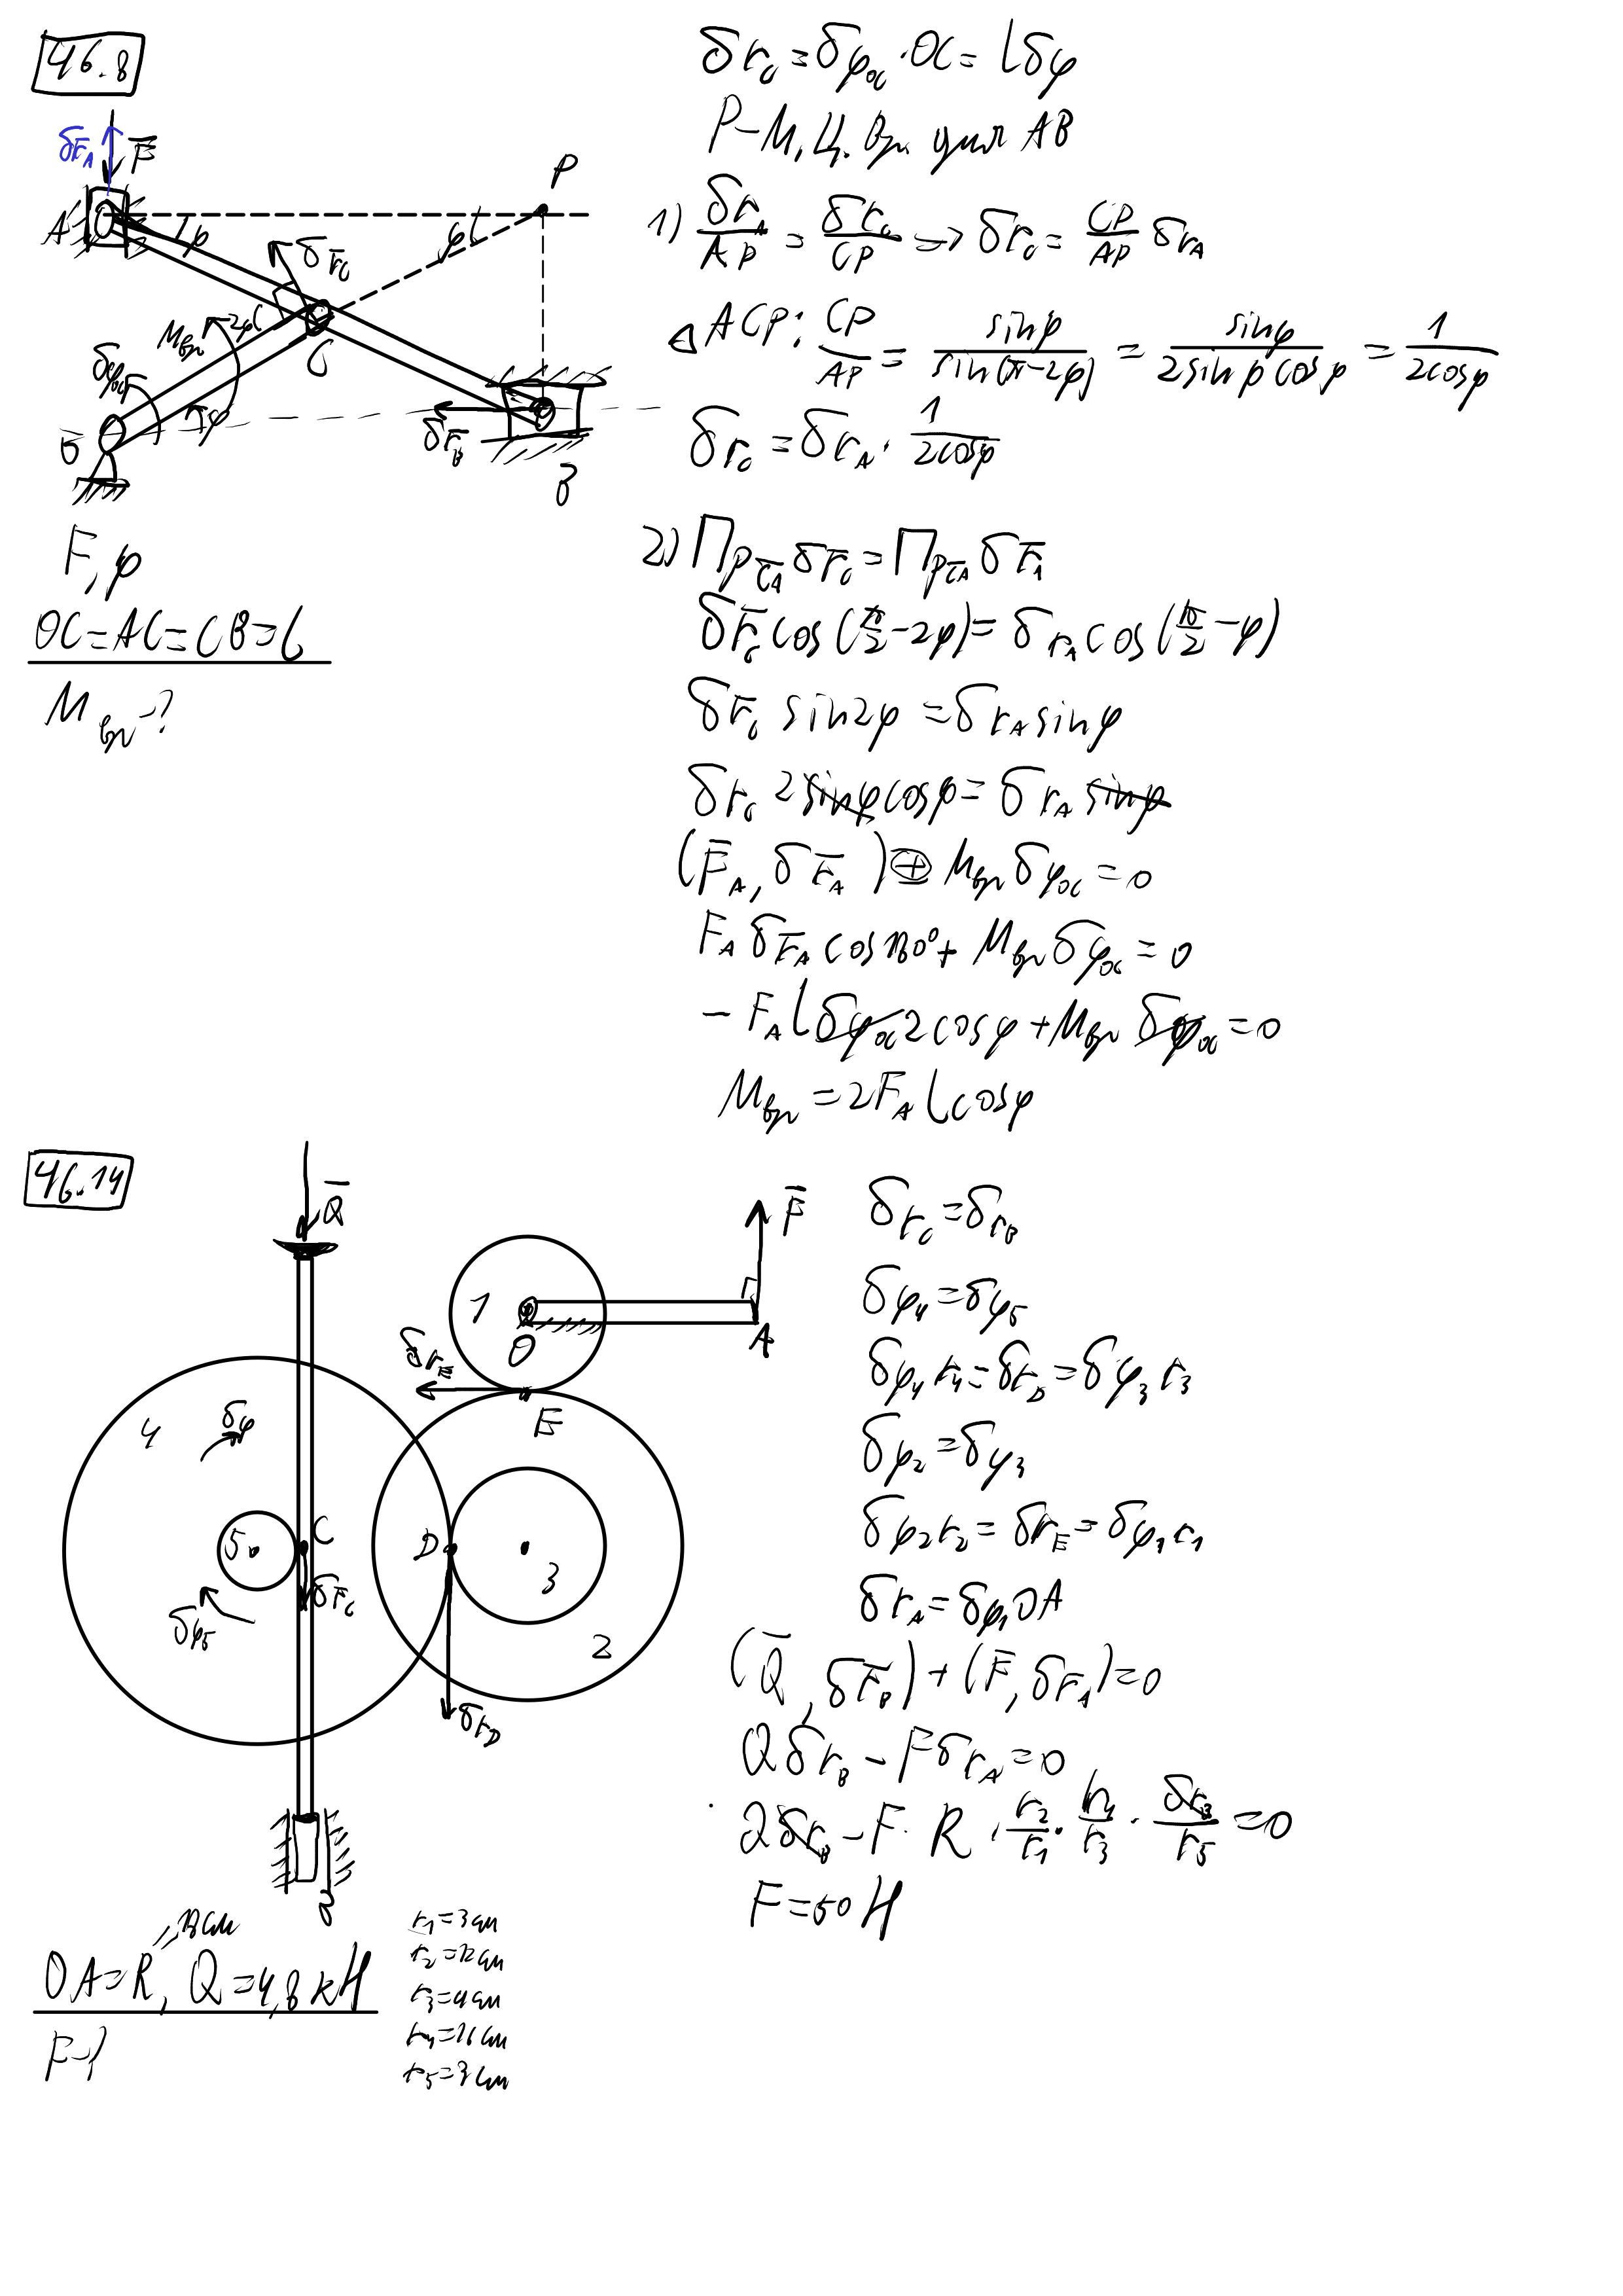 46.8
δr̄_A F̄
A φ φ P
δr̄_C
M_вр 2φ C
δφ_OC
O φ δr̄_B B
F, φ
OC=AC=CB=l
M_вр-?
δr_C = δφ_OC · OC = lδφ
P-М.Ц.Вр. для AB
1) δr_A/AP = δr_C/CP → δr_C = CP/AP δr_A
△ACP: CP/AP = sinφ/sin(π-2φ) = sinφ/2sinφcosφ = 1/2cosφ
δr_C = δr_A · 1/2cosφ
2) Пр_C̄Ā δr̄_C = Пр_C̄Ā δr̄_A
δr̄_C cos(π/2-2φ) = δr_A cos(π/2-φ)
δr̄_C sin2φ = δr_A sinφ
δr_C 2sinφcosφ = δr_A sinφ
(F̄_A, δr̄_A) ⊕ M_вр δφ_OC = 0
F_A δr̄_A cos180° + M_вр δφ_OC = 0
- F_A l δφ_OC 2cosφ + M_вр δφ_OC = 0
M_вр = 2F_A l cosφ
46.14
Q̄ F̄
1 O A
δr_E
E
4 δφ
5 C D 3
δφ_5 δr̄_C
2
δr_D
B
OA=R, Q=4,8кН
F-?
r_1=3см
r_2=12см
r_3=4см
r_4=16см
r_5=3см
δr_C = δr_B
δφ_4 = δφ_5
δφ_4 r_4 = δr_D = δφ_3 r_3
δφ_2 = δφ_3
δφ_2 r_2 = δr_E = δφ_1 r_1
δr_A = δφ_1 OA
(Q̄, δr̄_B) + (F̄, δr̄_A) = 0
Qδr_B - Fδr_A = 0
Qδr_B - F · R · r_2/r_1 · r_4/r_3 · δr_B/r_5 = 0
F=50Н